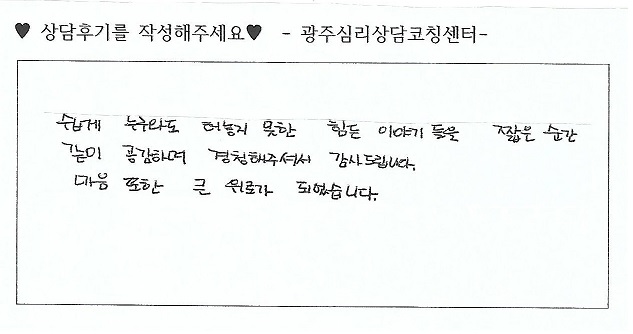 ♥ 상담후기를 작성해주세요♥ - 광주심리상담코칭센터-
쉽게 누구와도 터놓지 못한 힘든 이야기 들을 짧은 순간
같이 공감하며 경청해주셔서 감사드립니다.
마음 또한 큰 위로가 되었습니다.